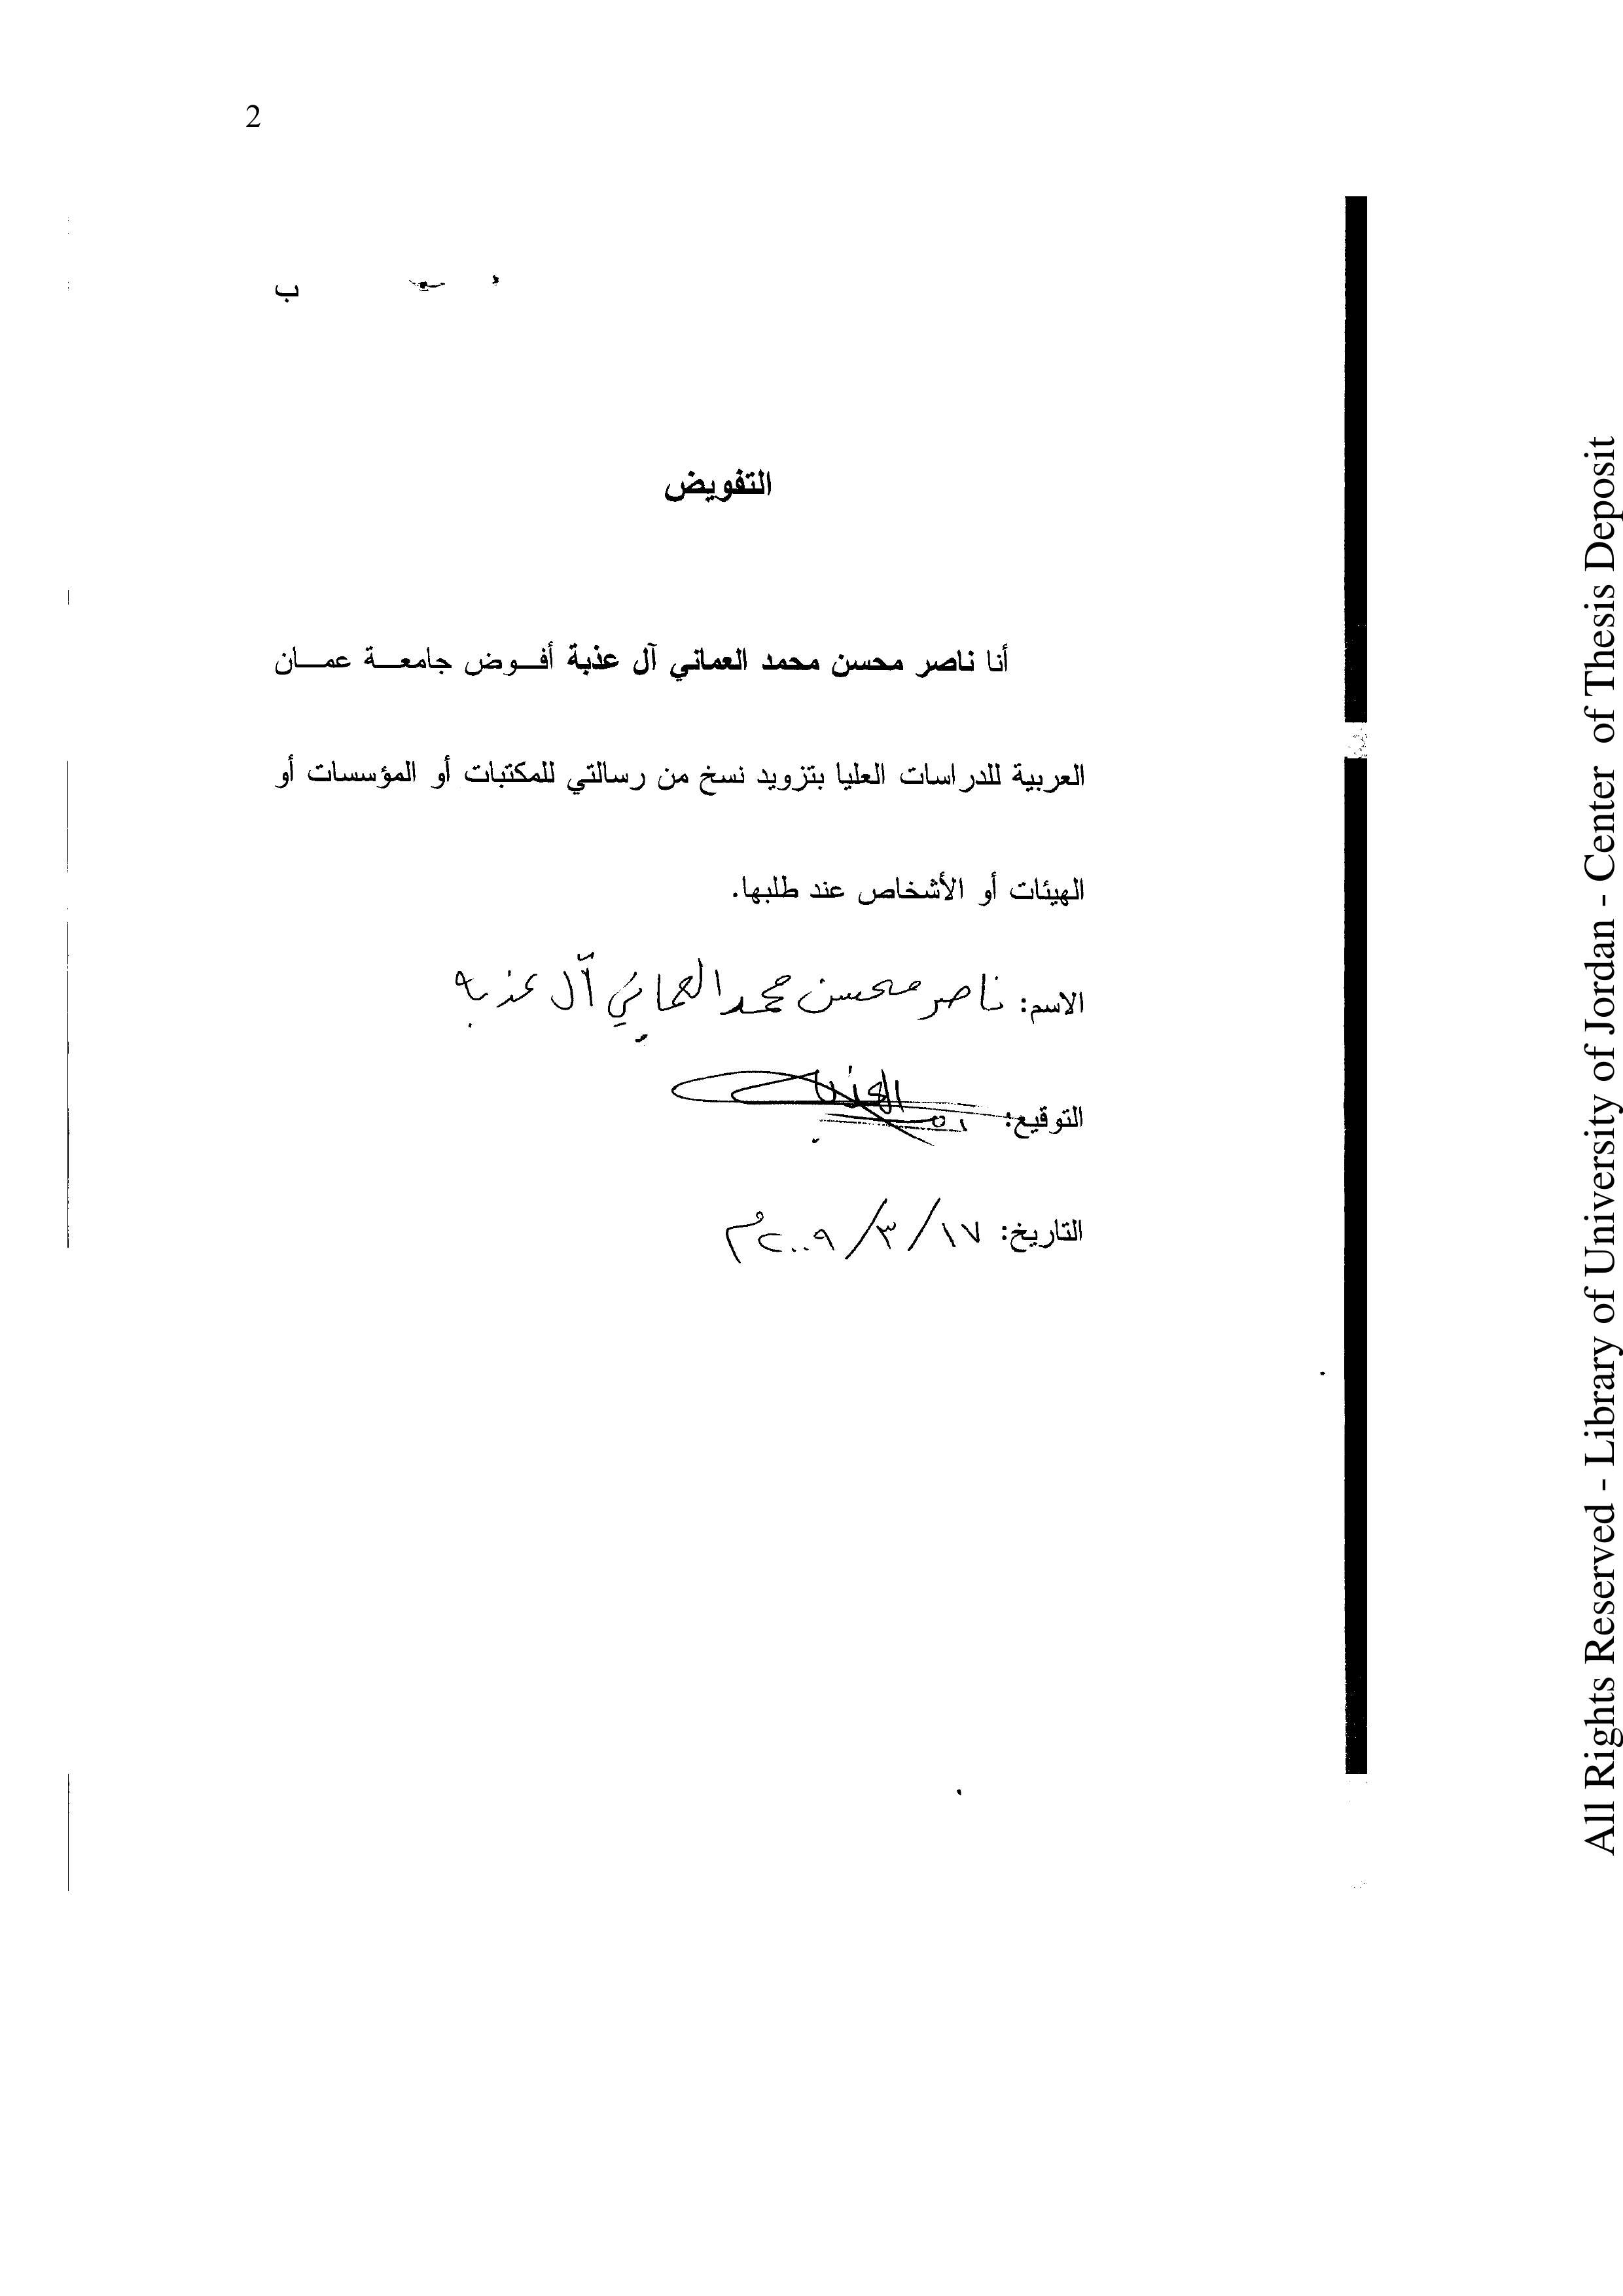 2
ب
التفويض
أنا ناصر محسن محمد العماني آل عذبة أفوض جامعة عمان
العربية للدراسات العليا بتزويد نسخ من رسالتي للمكتبات أو المؤسسات أو
الهيئات أو الأشخاص عند طلبها.
الاسم: ناصر محسن محمد العماني آل عذبه
التوقيع:
التاريخ: ١٧/٣/٢٠٠٩م
All Rights Reserved - Library of University of Jordan - Center of Thesis Deposit